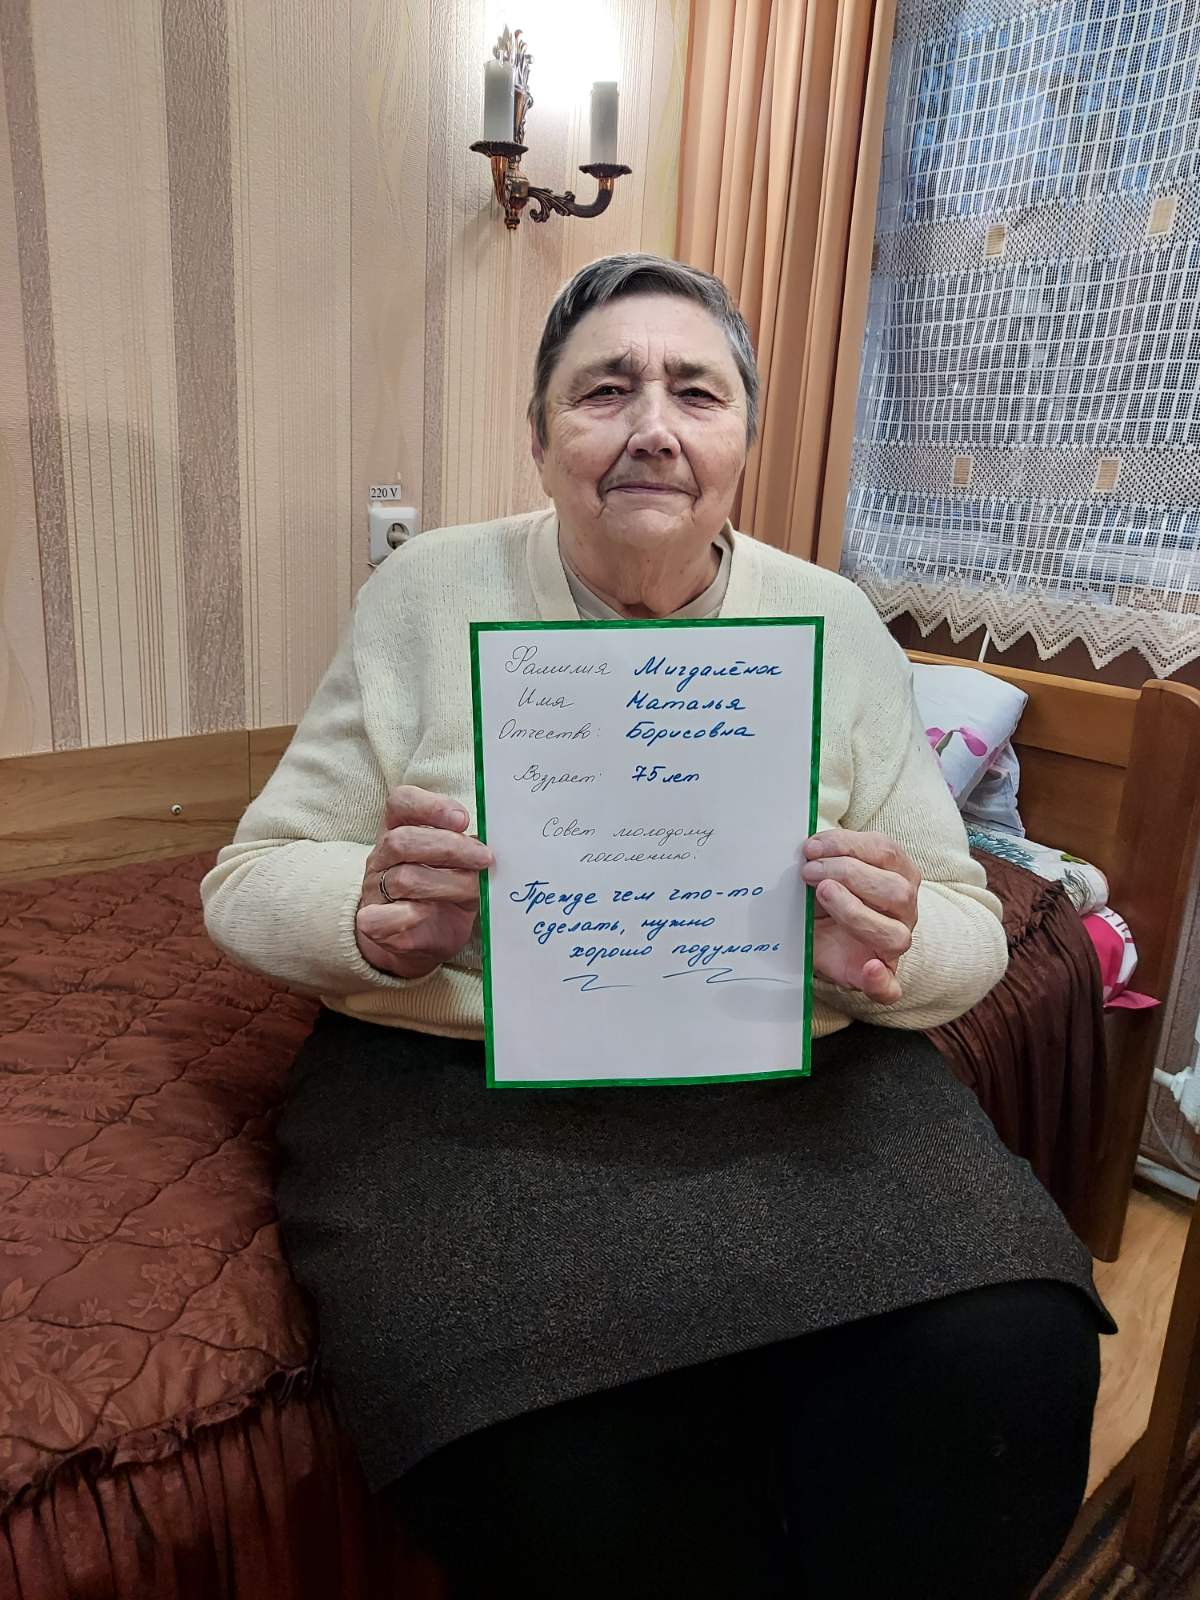 220 V
Фамилия Мигдалёнок
Имя Наталья
Отчество: Борисовна
Возраст: 75 лет
Совет молодому
поколению.
Прежде чем что-то
сделать, нужно
хорошо подумать